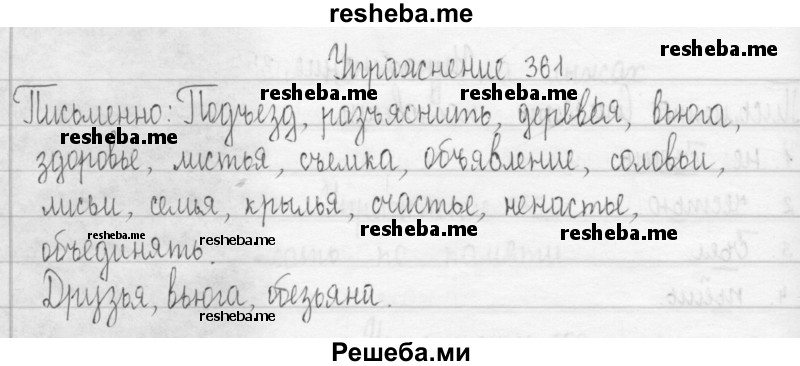 resheba.me
Упражнение 361. resheba.me
Письменно: Подъезд, разъяснить, деревья, вьюга,
resheba.me resheba.me
resheba.me
здоровье, листья, съемка, объявление, соловьи,
лисьи, семья, крылья, счастье, ненастье,
resheba.me resheba.me resheba.me
объединять.
Друзья, вьюга, обезьяна.
resheba.me resheba.me
Решеба.ми